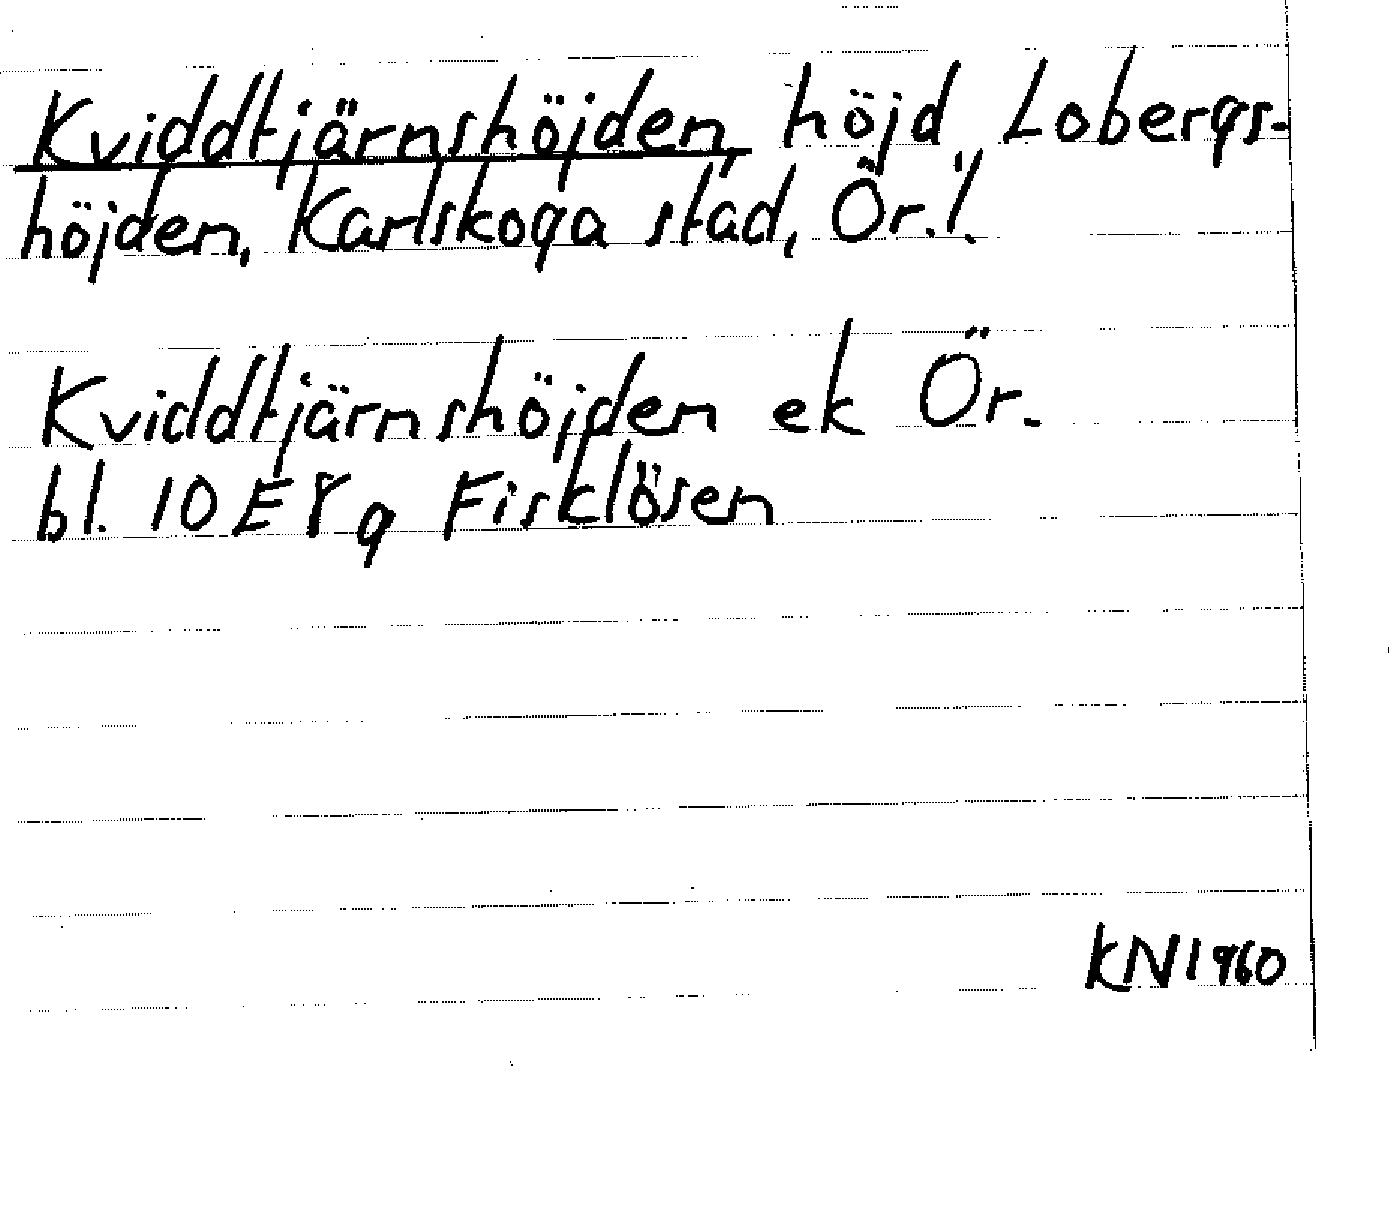 Kviddtjärnshöjden, höjd, Lobergs-
höjden, Karlskoga stad, Ör. l.
Kviddtjärnshöjden ek Ör.
bl. 10 E 8 g Fisklösen
KN 1960